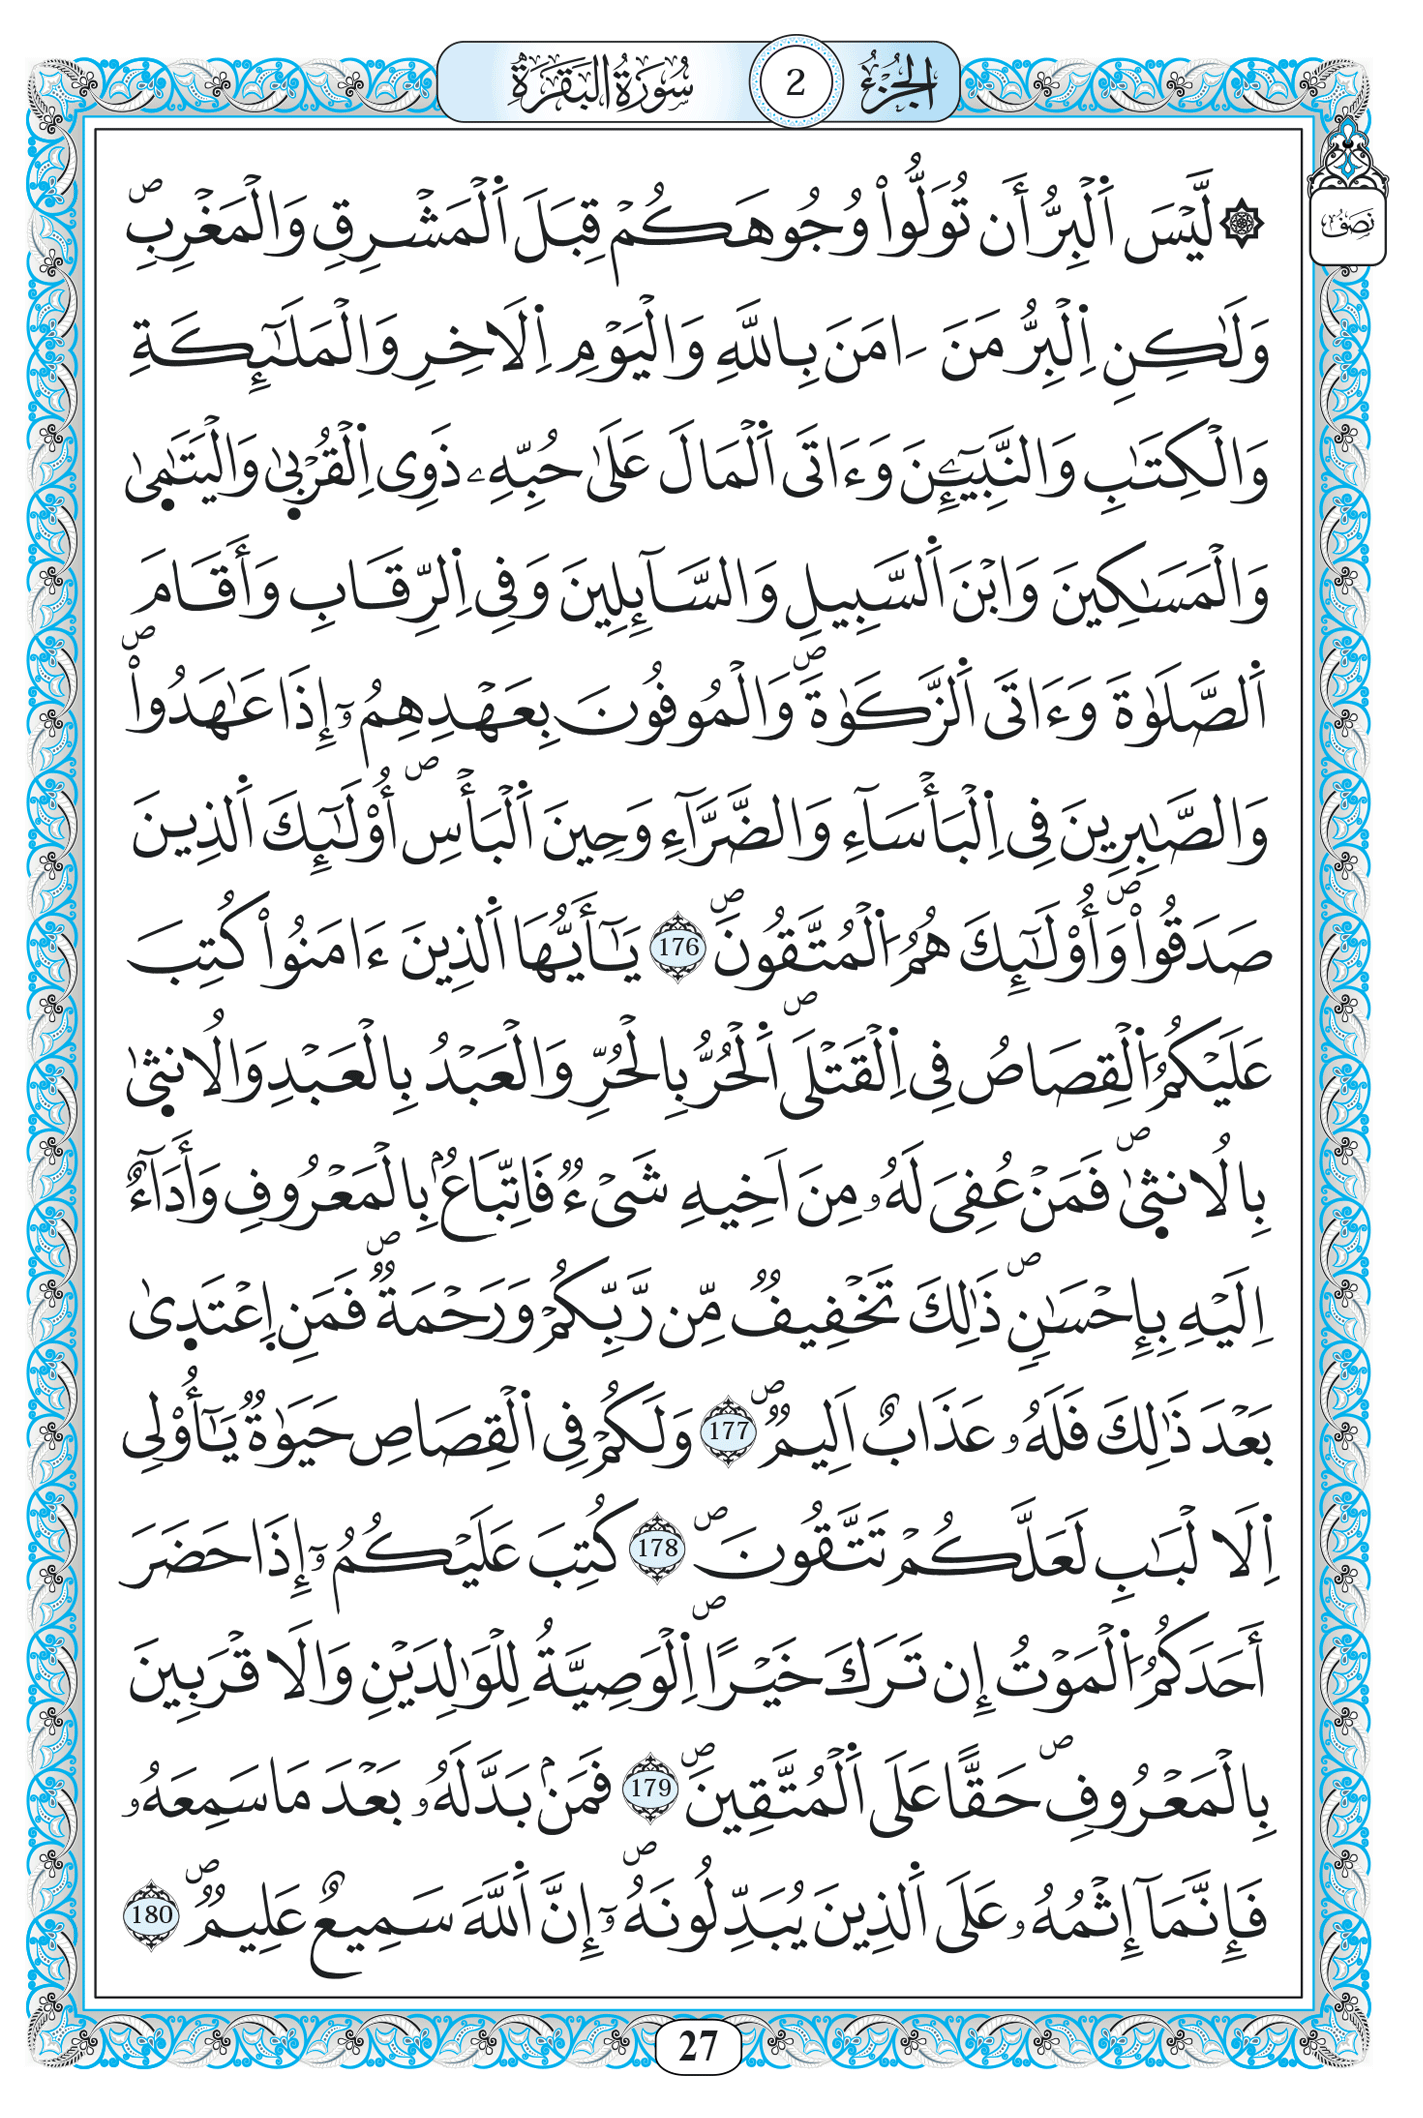 الجزء 2 سورة البقرة
نصف
۞ لَّيْسَ اَ۬لْبِرُّ أَن تُوَلُّواْ وُجُوهَكُمْ قِبَلَ اَ۬لْمَشْرِقِ وَالْمَغْرِبِۖ
وَلَٰكِنِ اِ۬لْبِرُّ مَنَ ءَامَنَ بِاللَّهِ وَالْيَوْمِ اِ۬لَاخِرِ وَالْمَلَٰٓئِكَةِ
وَالْكِتَٰبِ وَالنَّبِيٓـِٕۧنَ وَءَاتَى اَ۬لْمَالَ عَلَىٰ حُبِّهِۦ ذَوِى اِ۬لْقُرْب۪ىٰ وَالْيَتَٰم۪ىٰ
وَالْمَسَٰكِينَ وَابْنَ اَ۬لسَّبِيلِ وَالسَّآئِلِينَ وَفِى اِ۬لرِّقَابِ وَأَقَامَ
اَ۬لصَّلَوٰةَ وَءَاتَى اَ۬لزَّكَوٰةَۖ وَالْمُوفُونَ بِعَهْدِهِمُۥٓ إِذَا عَٰهَدُواْۖ
وَالصَّٰبِرِينَ فِى اِ۬لْبَأْسَآءِ وَالضَّرَّآءِ وَحِينَ اَ۬لْبَأْسِۖ أُوْلَٰٓئِكَ اَ۬لذِينَ
صَدَقُواْۖ وَأُوْلَٰٓئِكَ هُمُ اُ۬لْمُتَّقُونَۖ 176 يَٰٓأَيُّهَا اَ۬لذِينَ ءَامَنُواْ كُتِبَ
عَلَيْكُمُ اُ۬لْقِصَاصُ فِى اِ۬لْقَتْلَىۖ اَ۬لْحُرُّ بِالْحُرِّ وَالْعَبْدُ بِالْعَبْدِ وَالُانث۪ىٰ
بِالُانث۪ىٰۖ فَمَنْ عُفِىَ لَهُۥ مِنَ اَخِيهِ شَىْءٞ فَاتِّبَاعُۢ بِالْمَعْرُوفِ وَأَدَآءٌ
اِلَيْهِ بِإِحْسَٰنٖۖ ذَٰلِكَ تَخْفِيفٞ مِّن رَّبِّكُمْ وَرَحْمَةٞۖ فَمَنِ اِ۪عْتَد۪ىٰ
بَعْدَ ذَٰلِكَ فَلَهُۥ عَذَابٌ اَلِيمٞۖ 177 وَلَكُمْ فِى اِ۬لْقِصَاصِ حَيَوٰةٞ يَٰٓأُوْلِى
اِ۬لَالْبَٰبِ لَعَلَّكُمْ تَتَّقُونَۖ 178 كُتِبَ عَلَيْكُمُۥٓ إِذَا حَضَرَ
أَحَدَكُمُ اُ۬لْمَوْتُ إِن تَرَكَ خَيْرًاۖ اِ۬لْوَصِيَّةُ لِلْوَٰلِدَيْنِ وَالَاقْرَبِينَ
بِالْمَعْرُوفِۖ حَقًّا عَلَى اَ۬لْمُتَّقِينَۖ 179 فَمَنۢ بَدَّلَهُۥ بَعْدَ مَا سَمِعَهُۥ
فَإِنَّمَآ إِثْمُهُۥ عَلَى اَ۬لذِينَ يُبَدِّلُونَهُۥٓۖ إِنَّ اَ۬للَّهَ سَمِيعٌ عَلِيمٞۖ 180
27